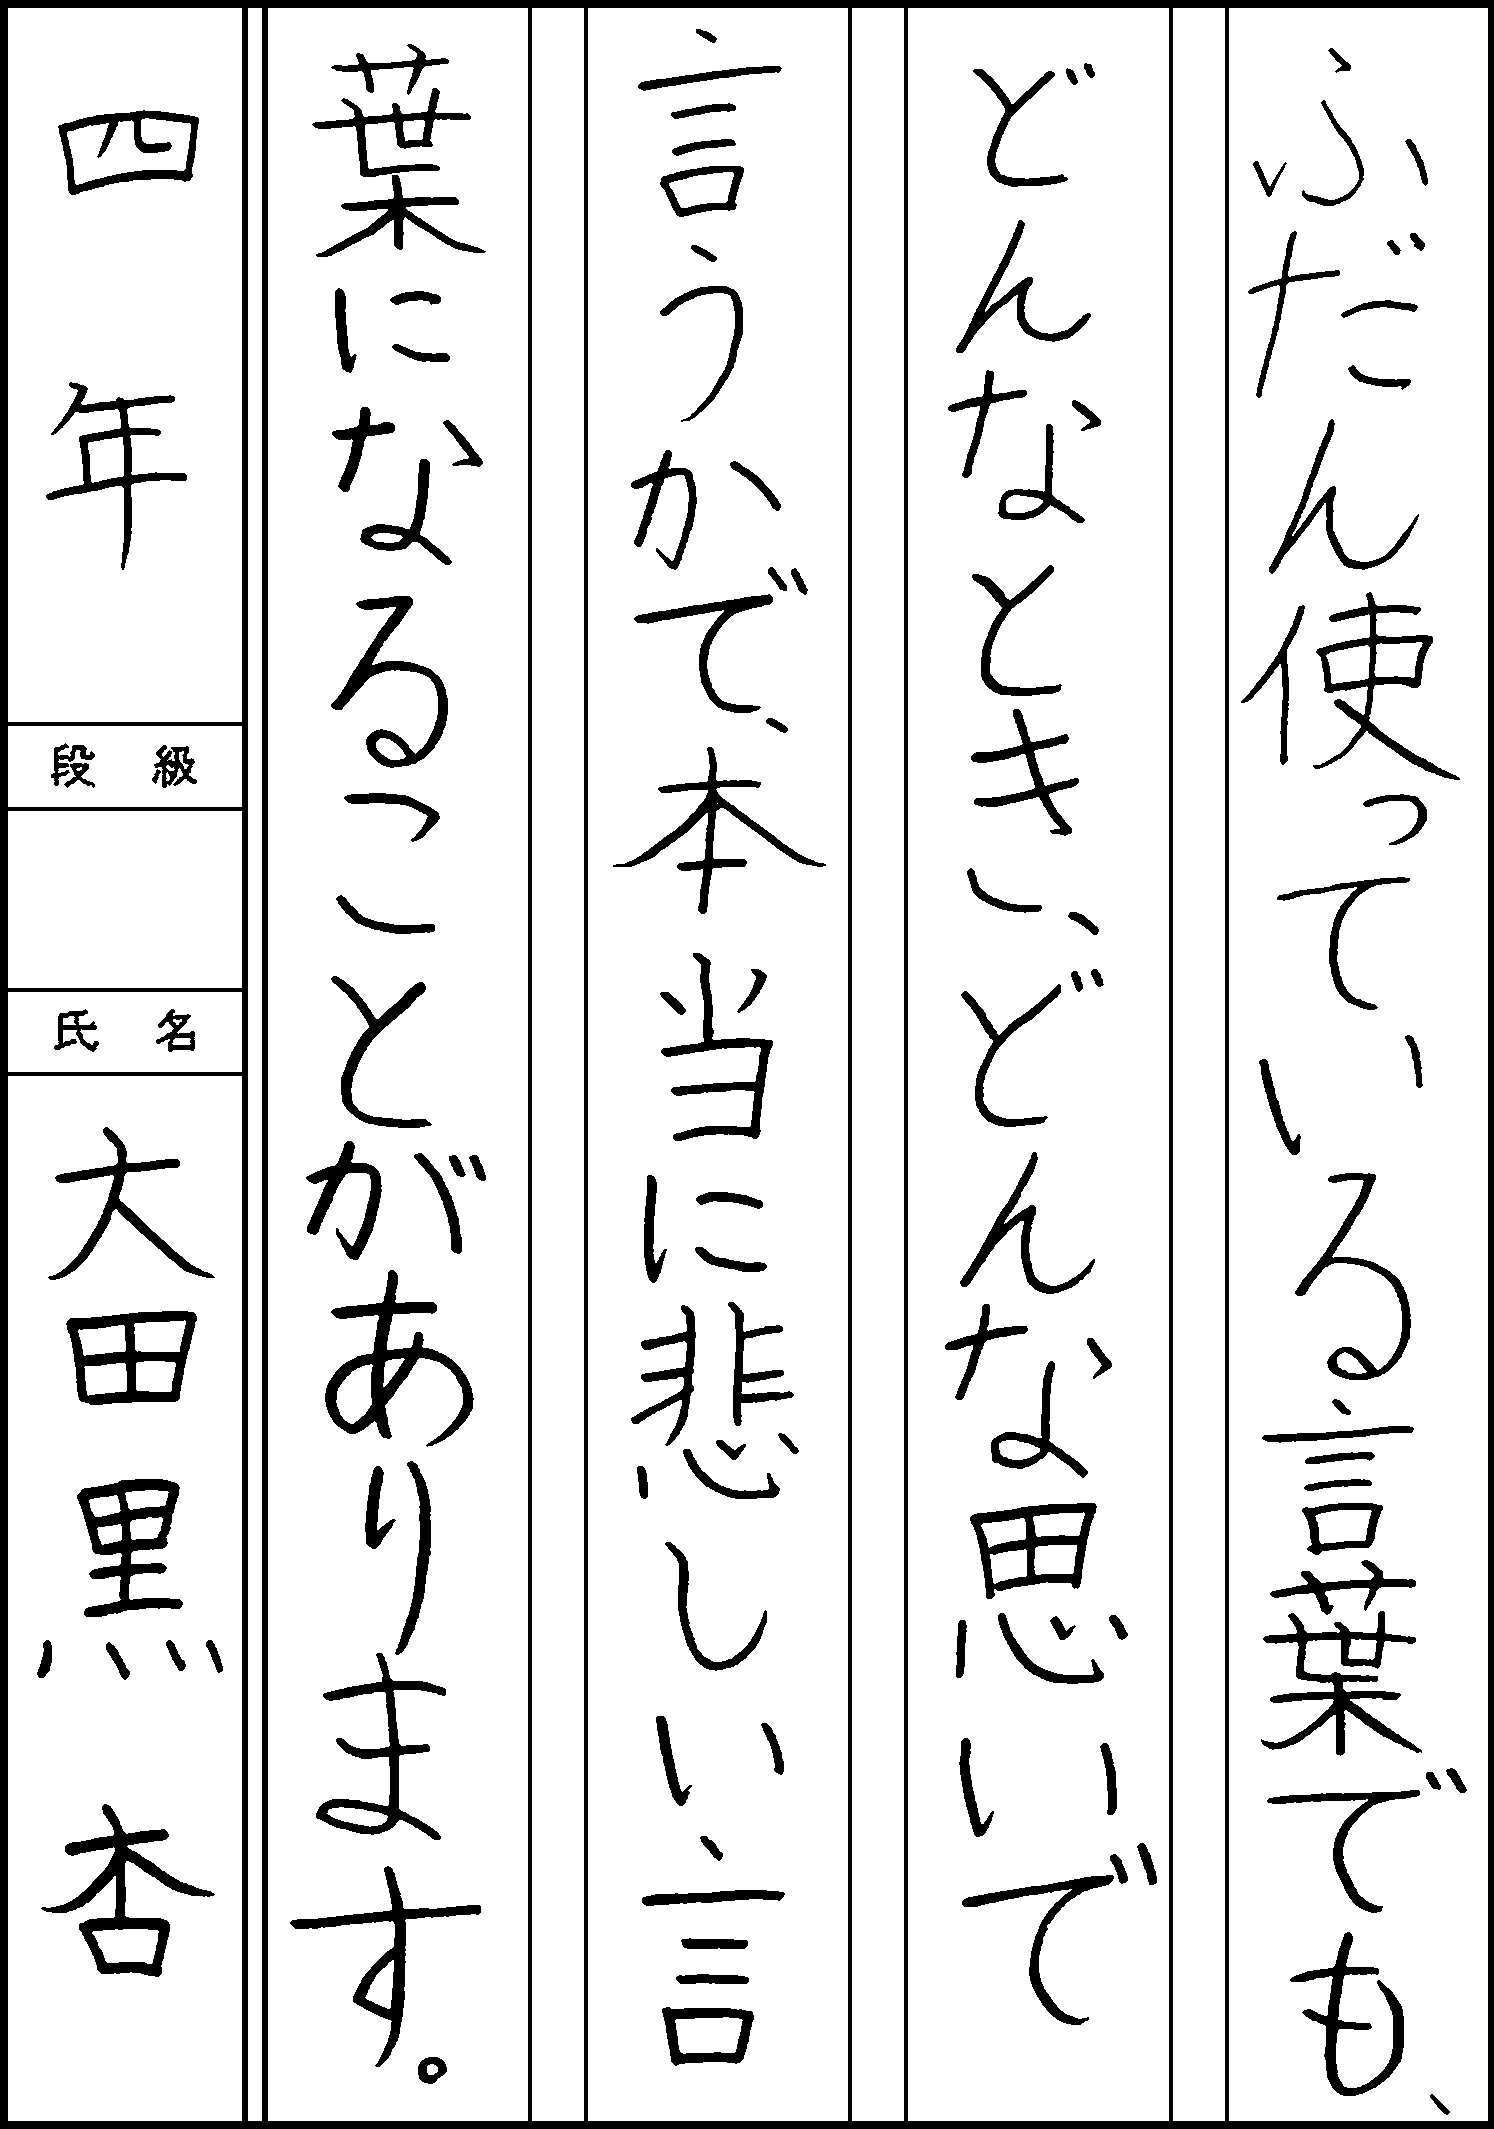 ふだん使っている言葉でも、
どんなときに、どんな思いで
言うかで、本当に悲しい言
葉になることがあります。
四年
段級
氏名
大田黒 杏